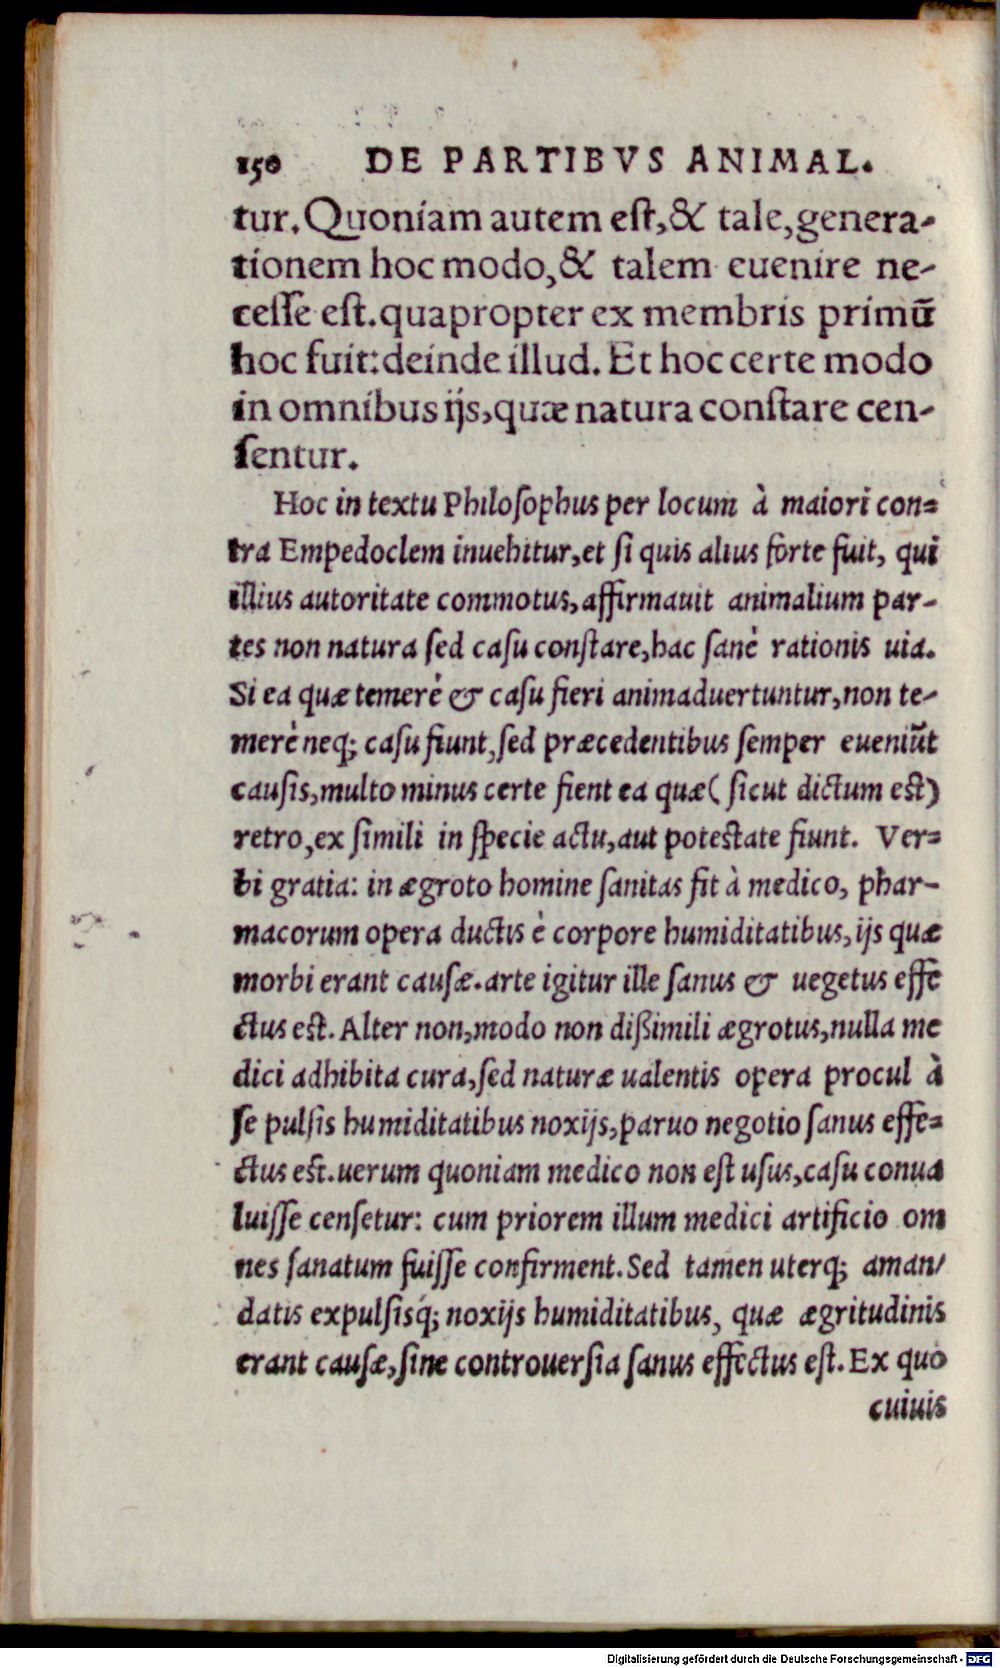 150 DE PARTIBVS ANIMAL.
tur. Quoniam autem eſt, & tale, genera-
tionem hoc modo, & talem euenire ne-
ceſſe eſt. quapropter ex membris primū
hoc fuit: deinde illud. Et hoc certe modo
in omnibus ijs, quæ natura conſtare cen-
ſentur.
Hoc in textu Philoſophus per locum à maiori con=
tra Empedoclem inuehitur, et ſi quis alius forte fuit, qui
illius autoritate commotus, affirmauit animalium par-
tes non natura ſed caſu conſtare, hac ſanè rationis uia.
Si ea quæ temerè & caſu fieri animaduertuntur, non te-
merè neq; caſu fiunt, ſed præcedentibus ſemper eueniūt
cauſis, multo minus certe fient ea quæ (ſicut dictum eſt)
retro, ex ſimili in ſpecie actu, aut poteſtate fiunt. Ver=
bi gratia: in ægroto homine ſanitas fit à medico, phar-
macorum opera ductis è corpore humiditatibus, ijs quæ
morbi erant cauſæ. arte igitur ille ſanus & uegetus effe
ctus eſt. Alter non, modo non dißimili ægrotus, nulla me
dici adhibita cura, ſed naturæ ualentis opera procul à
ſe pulſis humiditatibus noxijs, paruo negotio ſanus effe=
ctus eſt. uerum quoniam medico non eſt uſus, caſu conua
luiſſe cenſetur: cum priorem illum medici artificio om
nes ſanatum fuiſſe confirment. Sed tamen uterq; aman/
datis expulſisq́; noxijs humiditatibus, quæ ægritudinis
erant cauſæ, ſine controuerſia ſanus effectus eſt. Ex quo
cuiuis
Digitalisierung gefördert durch die Deutsche Forschungsgemeinschaft - DFG